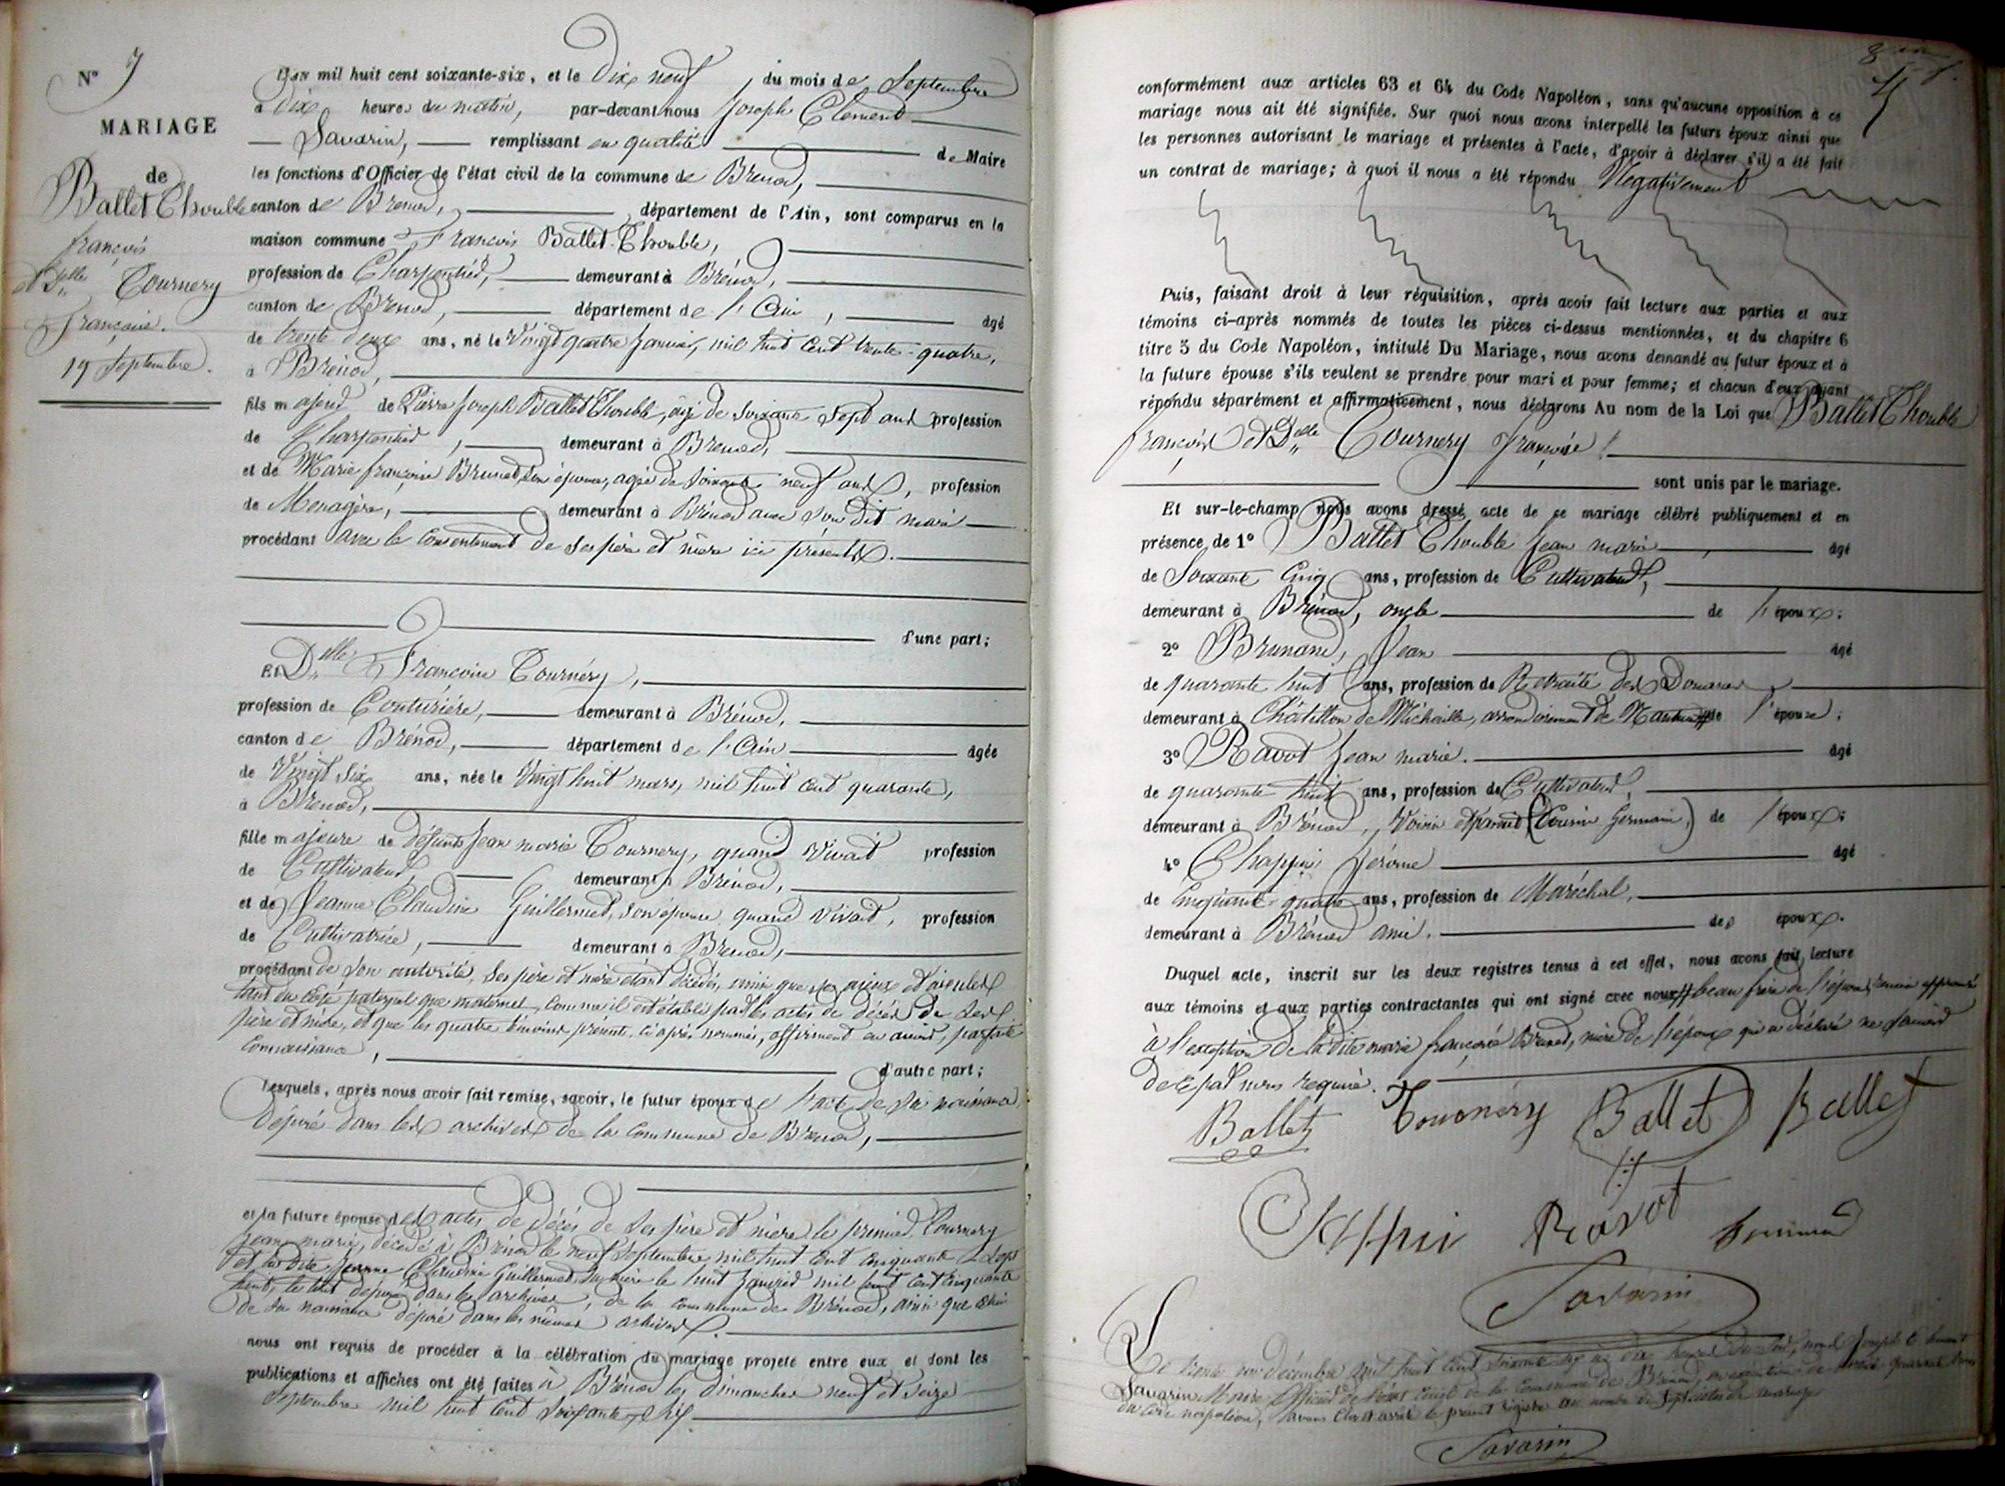 N° 7
MARIAGE
de
Ballet Thouble
françois
et Dlle Tournery
françoise.
19 Septembre.
L'an mil huit cent soixante-six, et le Dix neuf du mois de Septembre
à dix heures du matin, par-devant nous Joseph Clement
Savarin, remplissant en qualité de Maire
les fonctions d'Officier de l'état civil de la commune de Brenod,
canton de Brenod, département de l'Ain, sont comparus en la
maison commune François Ballet-Thouble,
profession de Charpentier, demeurant à Brénod,
canton de Brenod, département de l'Ain, âgé
de trente deux ans, né le Vingt quatre Janvier, mil huit cent trente-quatre,
à Brénod,
fils majeur de Pierre Joseph Ballet Thouble, âgé de Soixante Sept ans profession
de Charpentier, demeurant à Brenod,
et de Marie françoise Brunet, son épouse, agée de soixante neuf ans, profession
de Menagère, demeurant à Brénod avec son dit mari
procédant avec le Consentement de ses père et mère ici présents.
d'une part;
Et Dlle Françoise Tournéry,
profession de Couturière, demeurant à Brénod,
canton de Brénod, département de l'Ain âgée
de Vingt Six ans, née le Vingt huit mars, mil huit cent quarante,
à Brenod,
fille majeure de Défunts Jean marie Tournery, quand vivait profession
de Cultivateur, demeurant à Brénod,
et de Jeanne Claudine Guillermet, son épouse quand vivait, profession
de Cultivatrice, demeurant à Brenod,
procédant de son autorité, ses père et mère étant décédés, ainsi que ses aieux et aieules
tant du coté paternel que maternel comme il est établi par les actes de décès de ses
père et mère, et que les quatre témoins présents, ci après nommés, affirment en avoir parfaite
connaissance,
d'autre part;
Lesquels, après nous avoir fait remise, savoir, le futur époux de l'acte de sa naissance
déposé dans les archives de la commune de Brenod,
et la future épouse des actes de décès de ses père et mère le premier Tournery
Jean marie, décédé à Brénod le neuf Septembre mil huit cent cinquante Sept
et la dite Jeanne Claudine Guillermet sa mère le huit Janvier mil huit cent cinquante
huit, le tout déposé dans les archives, de la commune de Brénod, ainsi que celui
de sa naissance déposé dans les mêmes archives.
nous ont requis de procéder à la célébration du mariage projeté entre eux et dont les
publications et affiches ont été faites à Brénod les Dimanches neuf et seize
Septembre mil huit cent soixante-six.
conformément aux articles 63 et 64 du Code Napoléon, sans qu'aucune opposition à ce
mariage nous ait été signifiée. Sur quoi nous avons interpellé les futurs époux ainsi que
les personnes autorisant le mariage et présentes à l'acte, d'avoir à déclarer s'il a été fait
un contrat de mariage; à quoi il nous a été répondu Négativement
Puis, faisant droit à leur réquisition, après avoir fait lecture aux parties et aux
témoins ci-après nommés de toutes les pièces ci-dessus mentionnées, et du chapitre 6
titre 5 du Code Napoléon, intitulé Du Mariage, nous avons demandé au futur époux et à
la future épouse s'ils veulent se prendre pour mari et pour femme; et chacun d'eux ayant
répondu séparément et affirmativement, nous déclarons Au nom de la Loi que Ballet Thouble
françois et Dlle Tournery françoise
sont unis par le mariage.
Et sur-le-champ nous avons dressé acte de ce mariage célébré publiquement et en
présence de 1° Ballet Thouble Jean marie âgé
de Soixante Cinq ans, profession de Cultivateur,
demeurant à Brénod, oncle de l'époux;
2° Brunand, Jean âgé
de quarante huit ans, profession de Retraité des Douanes
demeurant à Châtillon de Michaille, arrondissement de Nantua # de l'épouse;
3° Ravot Jean marie. âgé
de quarante huit ans, profession de Cultivateur,
demeurant à Brénod, Voisin et parent (Cousin Germain) de l'époux;
4° Chappui Jérome âgé
de Cinquante quatre ans, profession de Maréchal,
demeurant à Brénod ami. des époux.
Duquel acte, inscrit sur les deux registres tenus à cet effet, nous avons fait lecture
aux témoins et aux parties contractantes qui ont signé avec nous # beau frère de l'épouse, renvoi approuvé
à l'exception de la dite marie françoise Brunet, mère de l'époux qui a déclaré ne savoir
de ce par nous requise.
Ballet Tournery Ballet Ballet
Chappui Ravot
Savarin
Le trente un décembre mil huit cent soixante six à dix heures du soir, nous Joseph Clement
Savarin Maire Officier de l'état civil de la Commune de Brenod, en exécution de l'article quarante trois
du Code napoléon, avons clos et arrêté le présent registre au nombre de Sept actes de mariage
Savarin